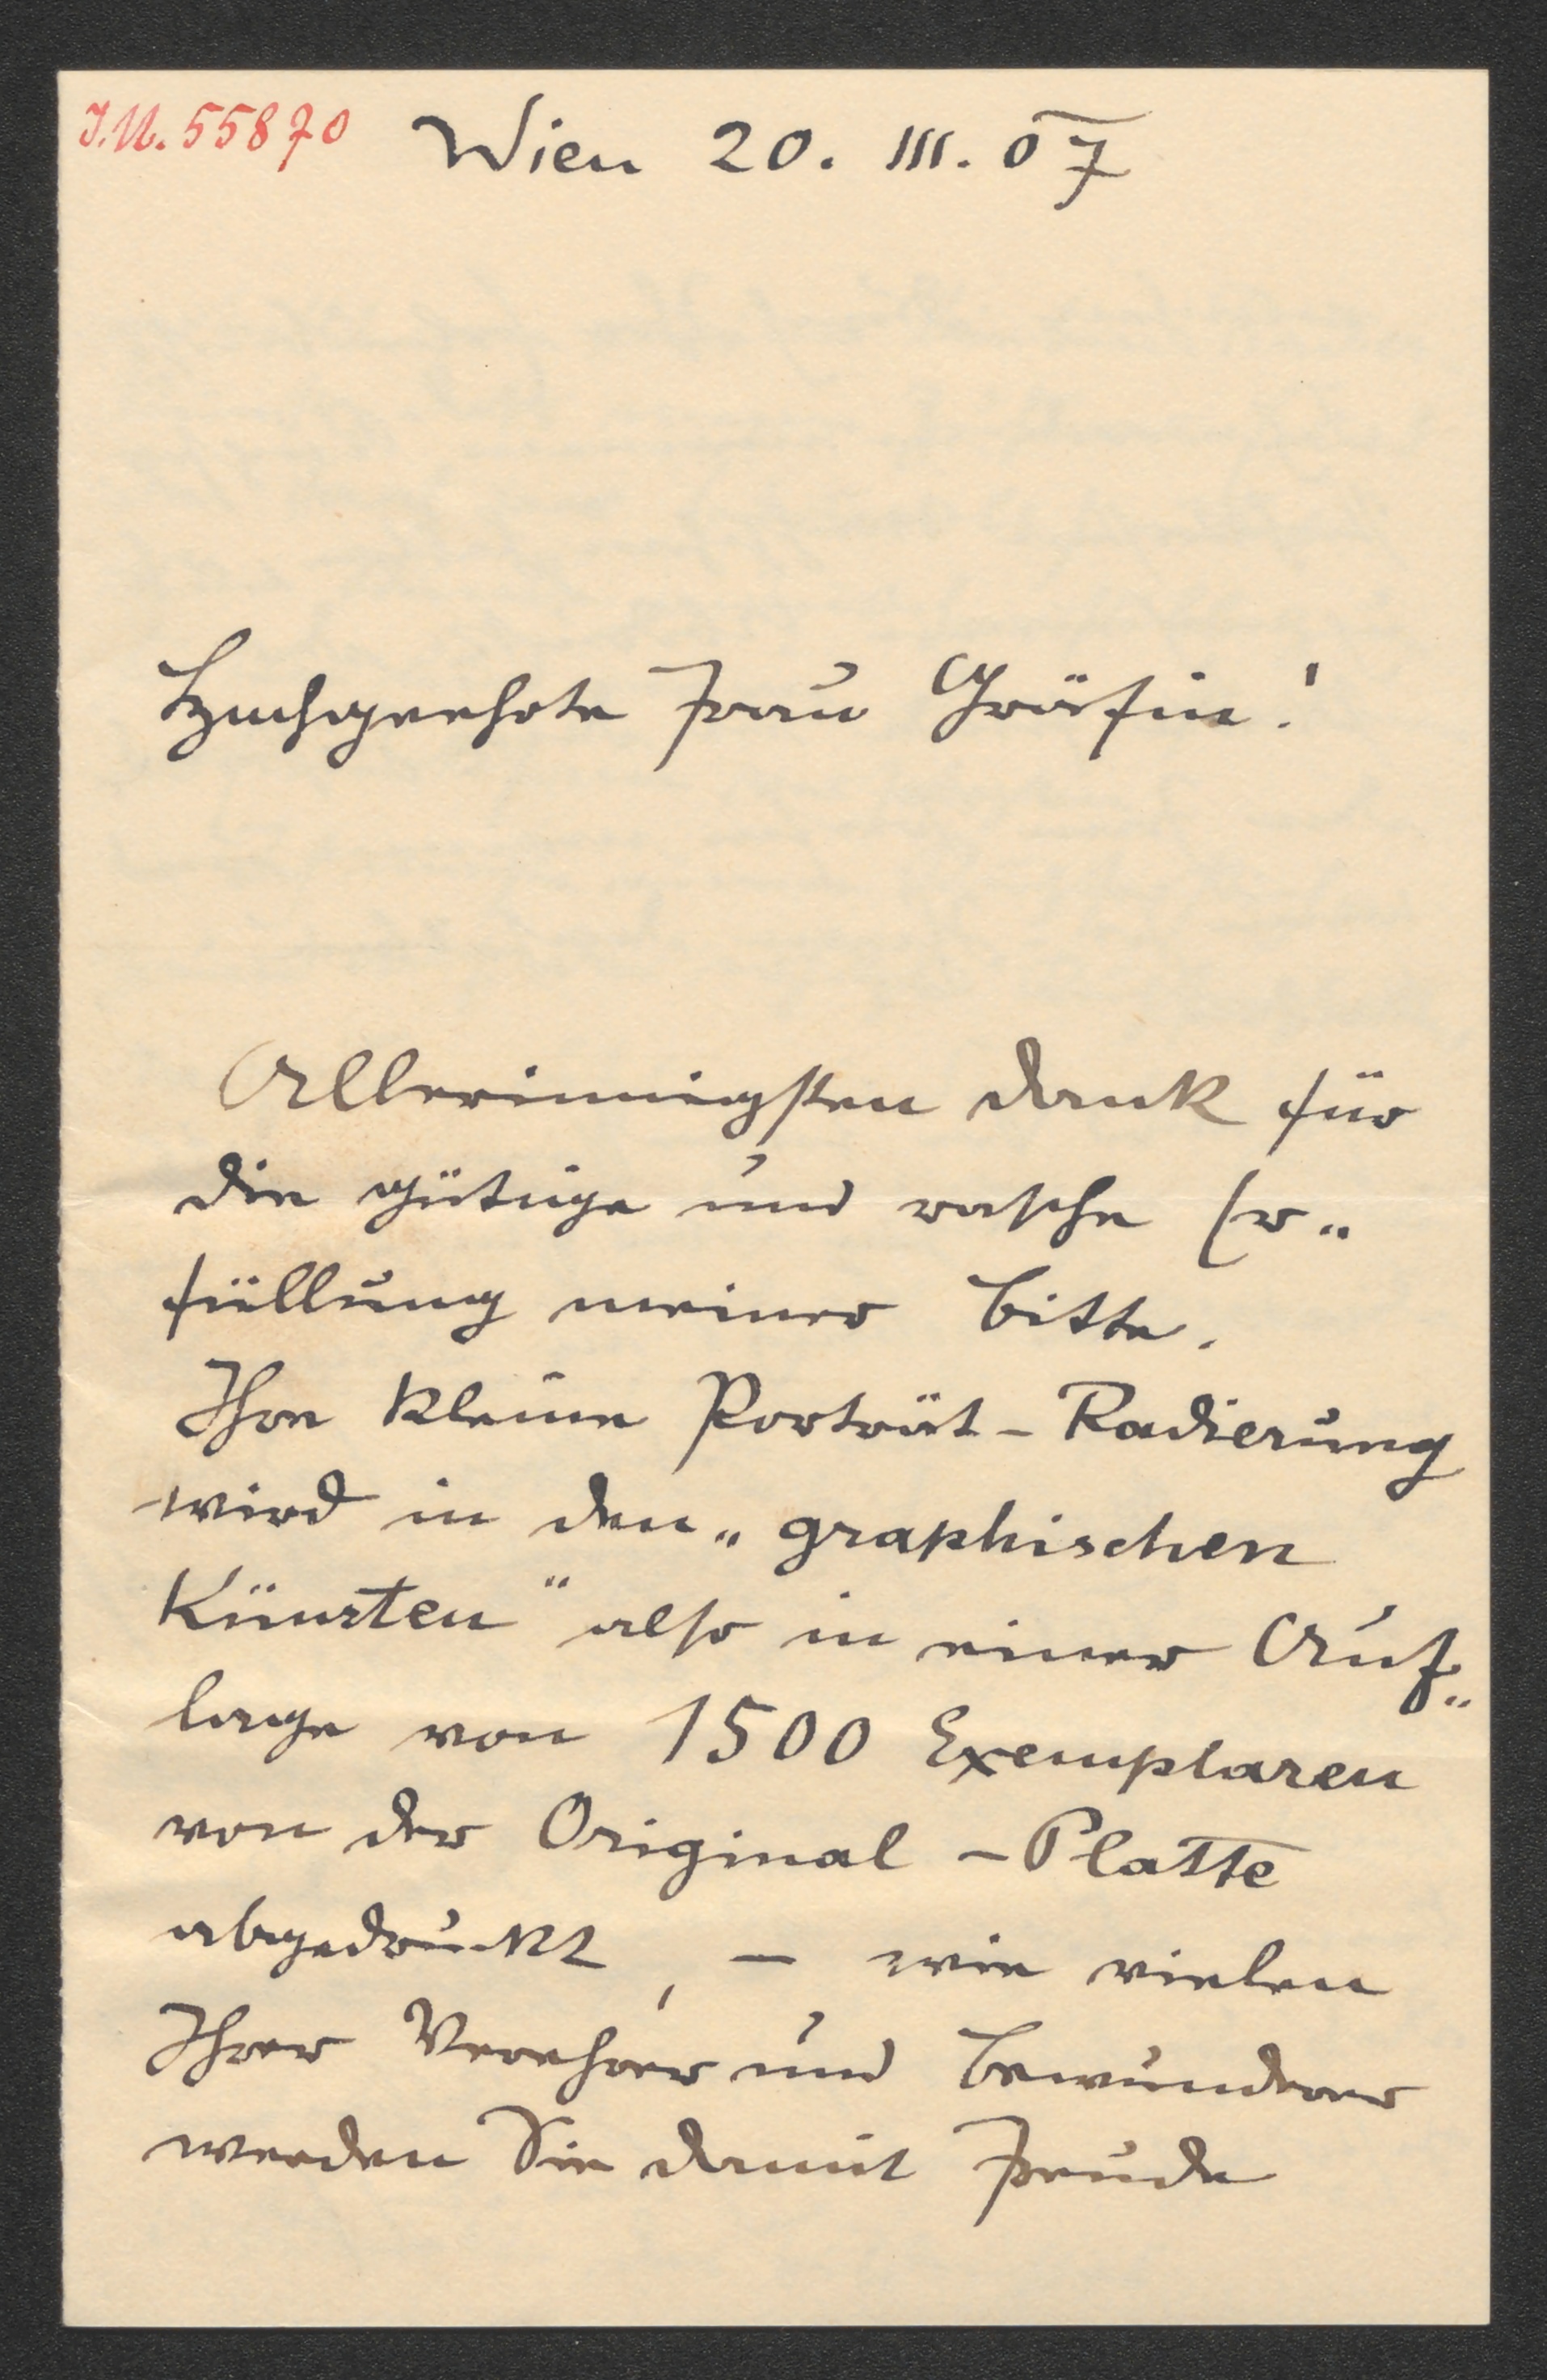 J.N. 55870
Wien 20. III. 07
Hochgeehrte Frau Gräfin!
Allerinnigsten Dank für
die gütige und rasche Er„
füllung meiner Bitte.
Ihre kleine Porträt-Radierung
wird in den „graphischen
Künsten“ also in einer Auf„
lage von 1500 Exemplaren
von der Original-Platte
abgedruckt, – wie vielen
Ihrer Verehrer und Bewunderer
werden Sie damit Freude